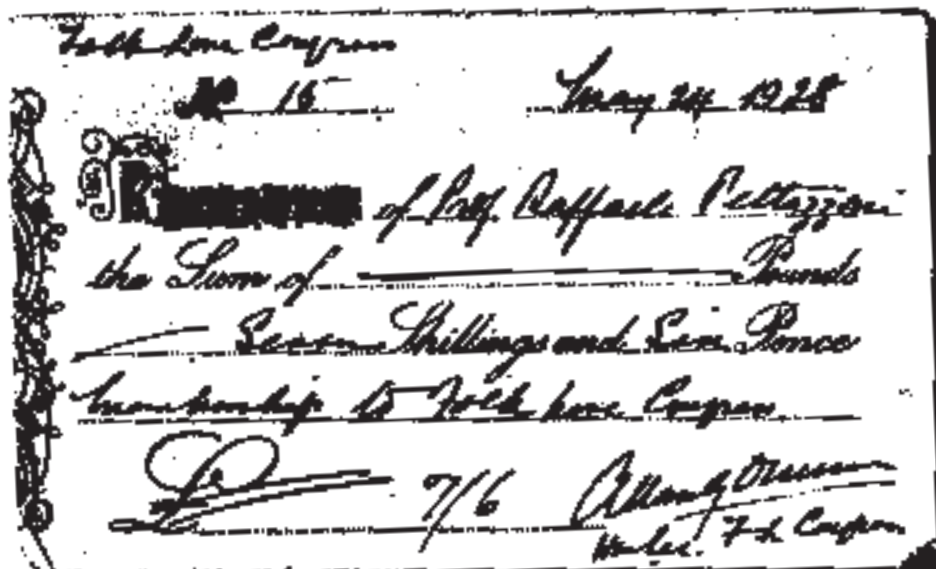 Folk Lore Congress
No 15 May 24 1928
of Prof. Raffaele Pettazzoni
the Sum of Pounds
Seven Shillings and Six Pence
membership to Folk Lore Congress
£ 7/6
F. L. Congress